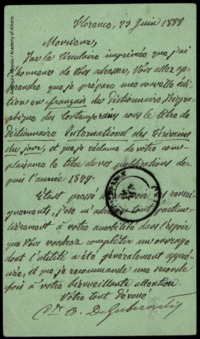 Florence, 23 Juin 1888
Monsieur,
Par la Circulaire imprimée que j'ai
l'honneur de vous adresser, vous allez
apprendre que je prépare une nouvelle édi-
tion en français du Dictionnaire Biogra-
phique des Contemporains sous le titre de
Dictionnaire International des Écrivains
du jour, et je réclame de votre com-
plaisance la liste de vos publications de-
puis l'année 1879.
Étant pressé d'avoir ces rensei-
gnements, je m'adresse tout particu-
lièrement à votre amabilité dans l'espoir
que vous voudrez compléter un ouvrage
dont l'utilité a été généralement appré-
ciée, et me recommande une seconde
fois à votre bienveillante attention.
Votre tout dévoué
Cte A. De Gubernatis
Academy of Athens